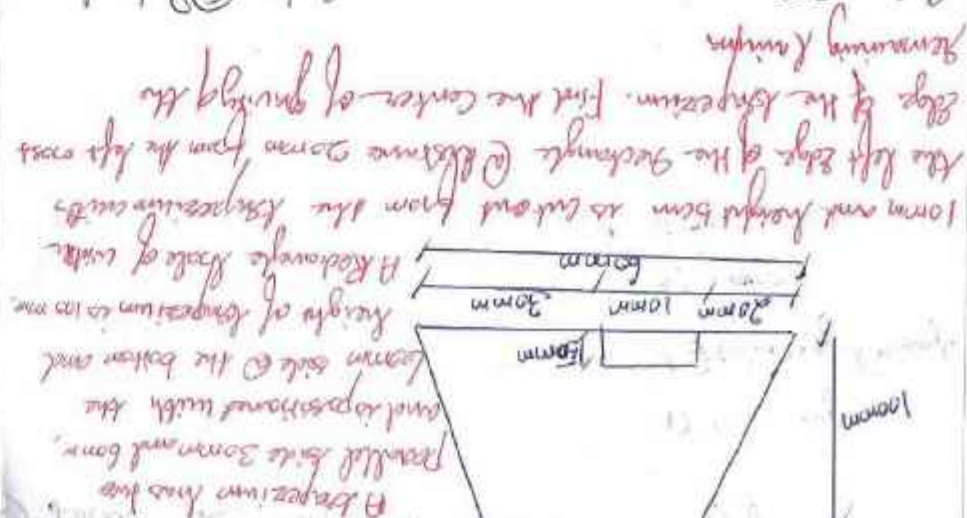 A trapezium has two
Parallel side 30mm and 60mm,
and is positioned with the
60mm side @ the bottom and
height of trapezium is 100 mm.
A Rectangle hole of width
100mm
5mm
20mm 10mm 30mm
60mm
10mm and height 5mm is cut out from the trapezium with
the left Edge of the Rectangle @ distance 20mm from the left most
Edge of the trapezium. Find the Center of gravity of the
remaining Lamina